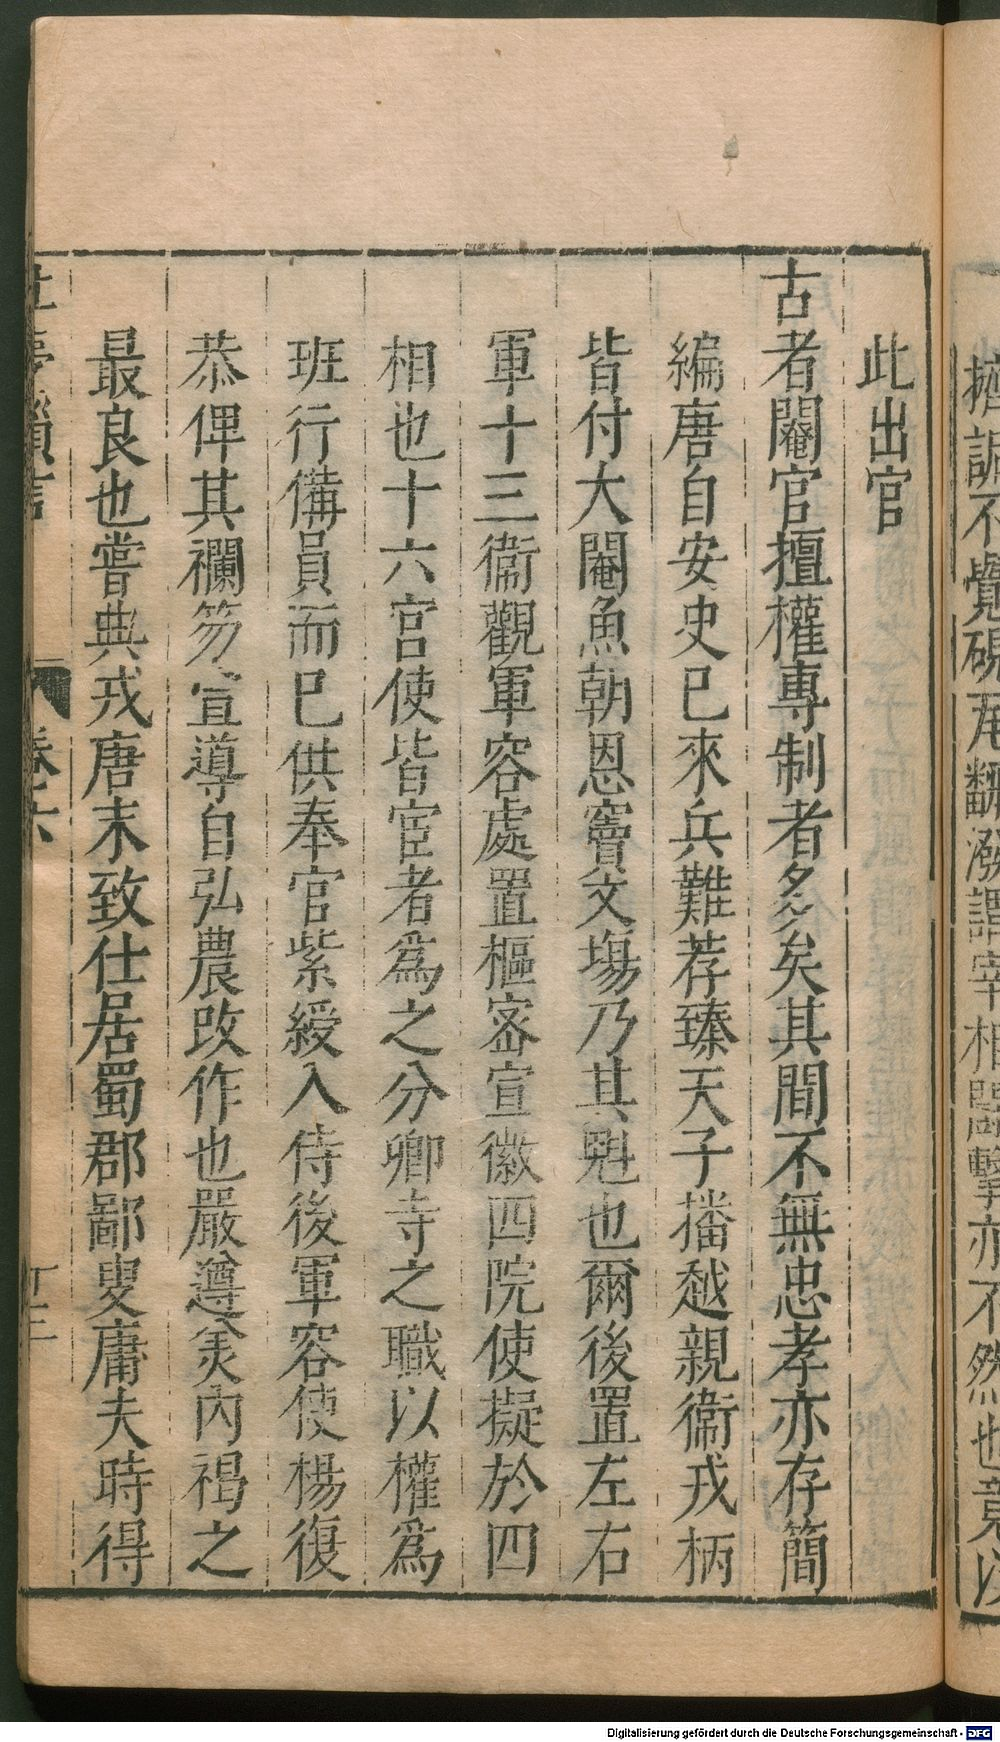 擠訴不覺硯瓦翻潑謂宰相鬬擊亦不然也竟以
此出官
古者閹官擅權專制者多矣其間不無忠孝亦存簡
編唐自安史已來兵難荐臻天子播越親衞戎柄
皆付大閹魚朝恩竇文場乃其魁也爾後置左右
軍十三衞觀軍容處置樞宻宣徽四院使擬於四
相也十六宫使皆宦者為之分卿寺之職以權為
班行備員而已供奉官紫綬入侍後軍容使楊復
恭俾其襴笏宣導自弘農改作也嚴遵美内褐之
最良也嘗典戎唐末致仕居蜀郡鄙叟庸夫時得
夢瑣言 卷六
Digitalisierung gefördert durch die Deutsche Forschungsgemeinschaft - DFG